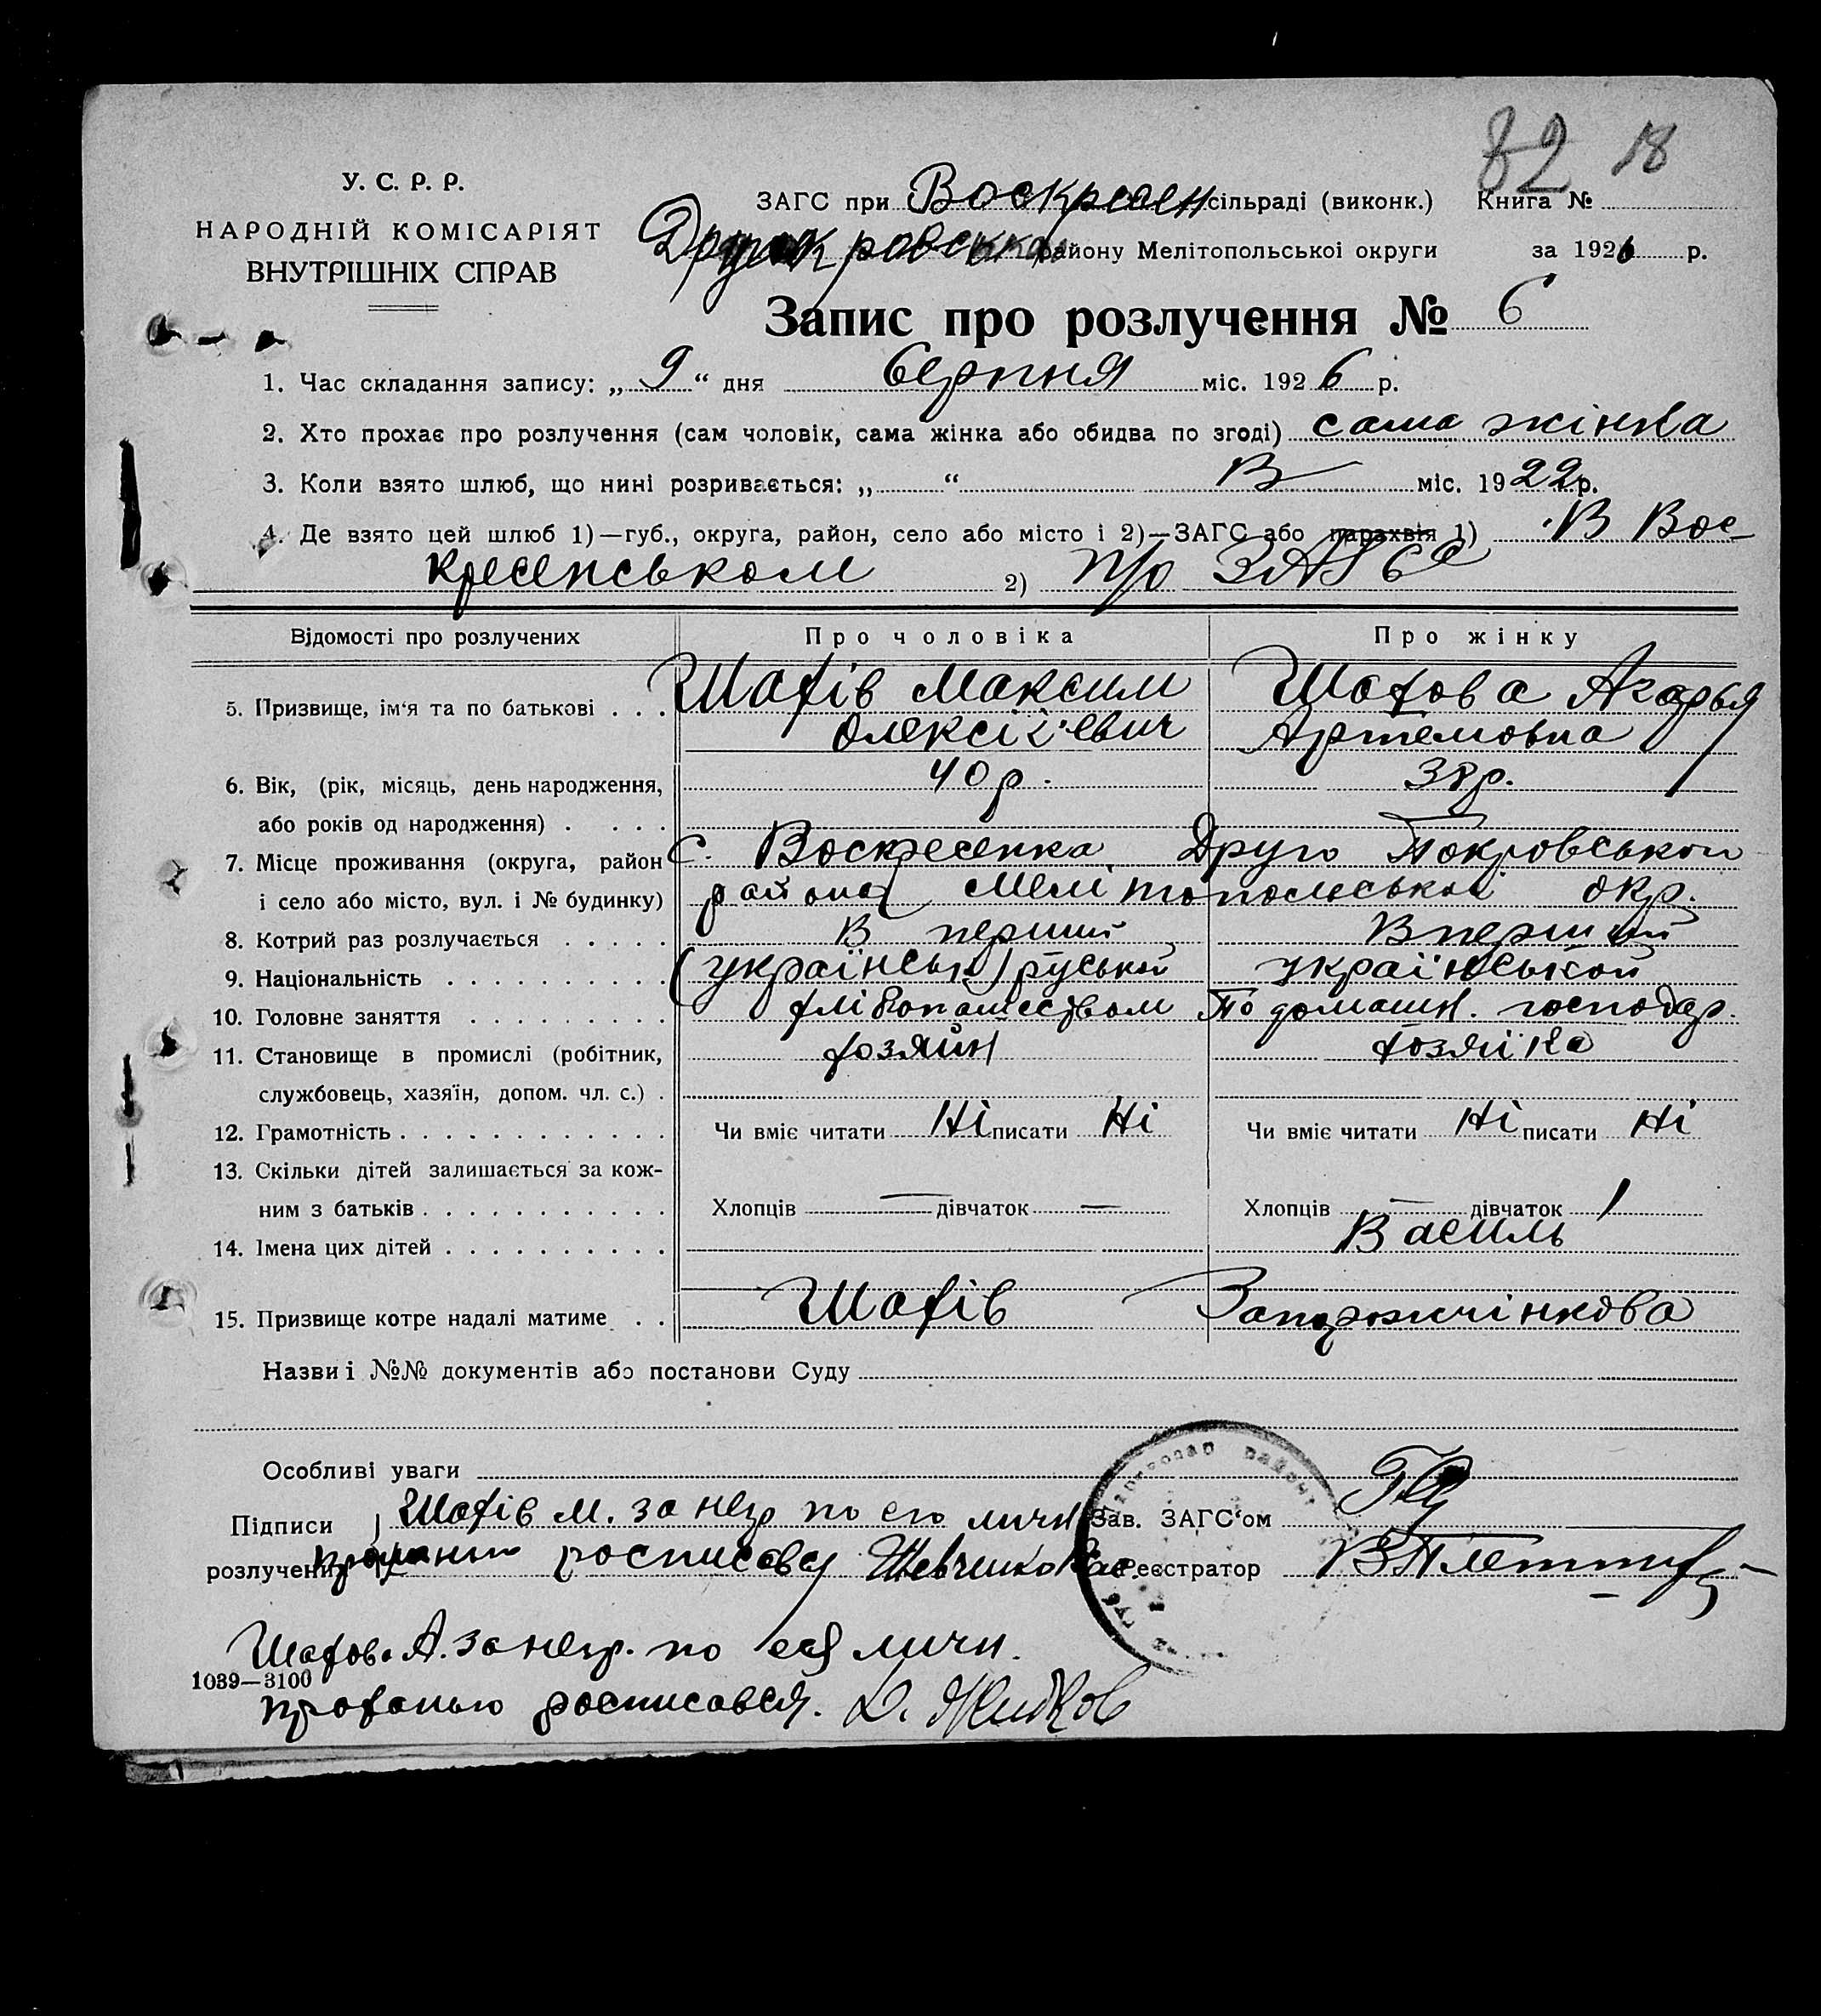 82 18
У. С. Р. Р.
НАРОДНІЙ КОМІСАРІЯТ
ВНУТРІШНІХ СПРАВ
ЗАГС при Воскресен сільраді (виконк.) Книга №
району Мелітопольської округи за 1926 р.
Запис про розлучення № 6
1. Час складання запису: „ 9 “ дня серпня міс. 1926 р.
2. Хто прохає про розлучення (сам чоловік, сама жінка або обидва по згоді) сама жінка
3. Коли взято шлюб, що нині розривається: „ “ В міс. 1922 р.
4. Де взято цей шлюб 1)—губ., округа, район, село або місто і 2)—ЗАГС або парахвія 1) В Вос-
кресенськом 2) п/о ЗАГСе
Відомості про розлучених Про чоловіка Про жінку
5. Призвище, ім'я та по батькові . . . Шахів Максим Шахова Агарья
Олексіїевич Артемовна
6. Вік, (рік, місяць, день народження, 40 р. 38 р.
або років од народження) . . . .
7. Місце проживання (округа, район с. Воскресенка Друго Покровськой
і село або місто, вул. і № будинку) района Мелітопольськой окр.
8. Котрий раз розлучається . . . . . В перший Вперший
9. Національність . . . . . . . . . . (українськ) руськой українськой
10. Головне заняття . . . . . . . . . хлібопашеством По домашн. господар.
11. Становище в промислі (робітник, хозяин хозяїка
службовець, хазяїн, допом. чл. с.) .
12. Грамотність . . . . . . . . . . . . Чи вміє читати Ні писати Ні Чи вміє читати Ні писати Ні
13. Скільки дітей залишається за кож-
ним з батьків . . . . . . . . . . . Хлопців — дівчаток — Хлопців — дівчаток 1
14. Імена цих дітей . . . . . . . . . . Василь
15. Призвище котре надалі матиме . . Шахів
Назви і №№ документів або постанови Суду
Особливі уваги
Підписи Шахів М. за негр по его личн Зав. ЗАГС'ом
розлучених росписався Шевченко Реєстратор
Шахова А. за негр. по ея личн.
1039—3100
прозьбою росписався. Д.